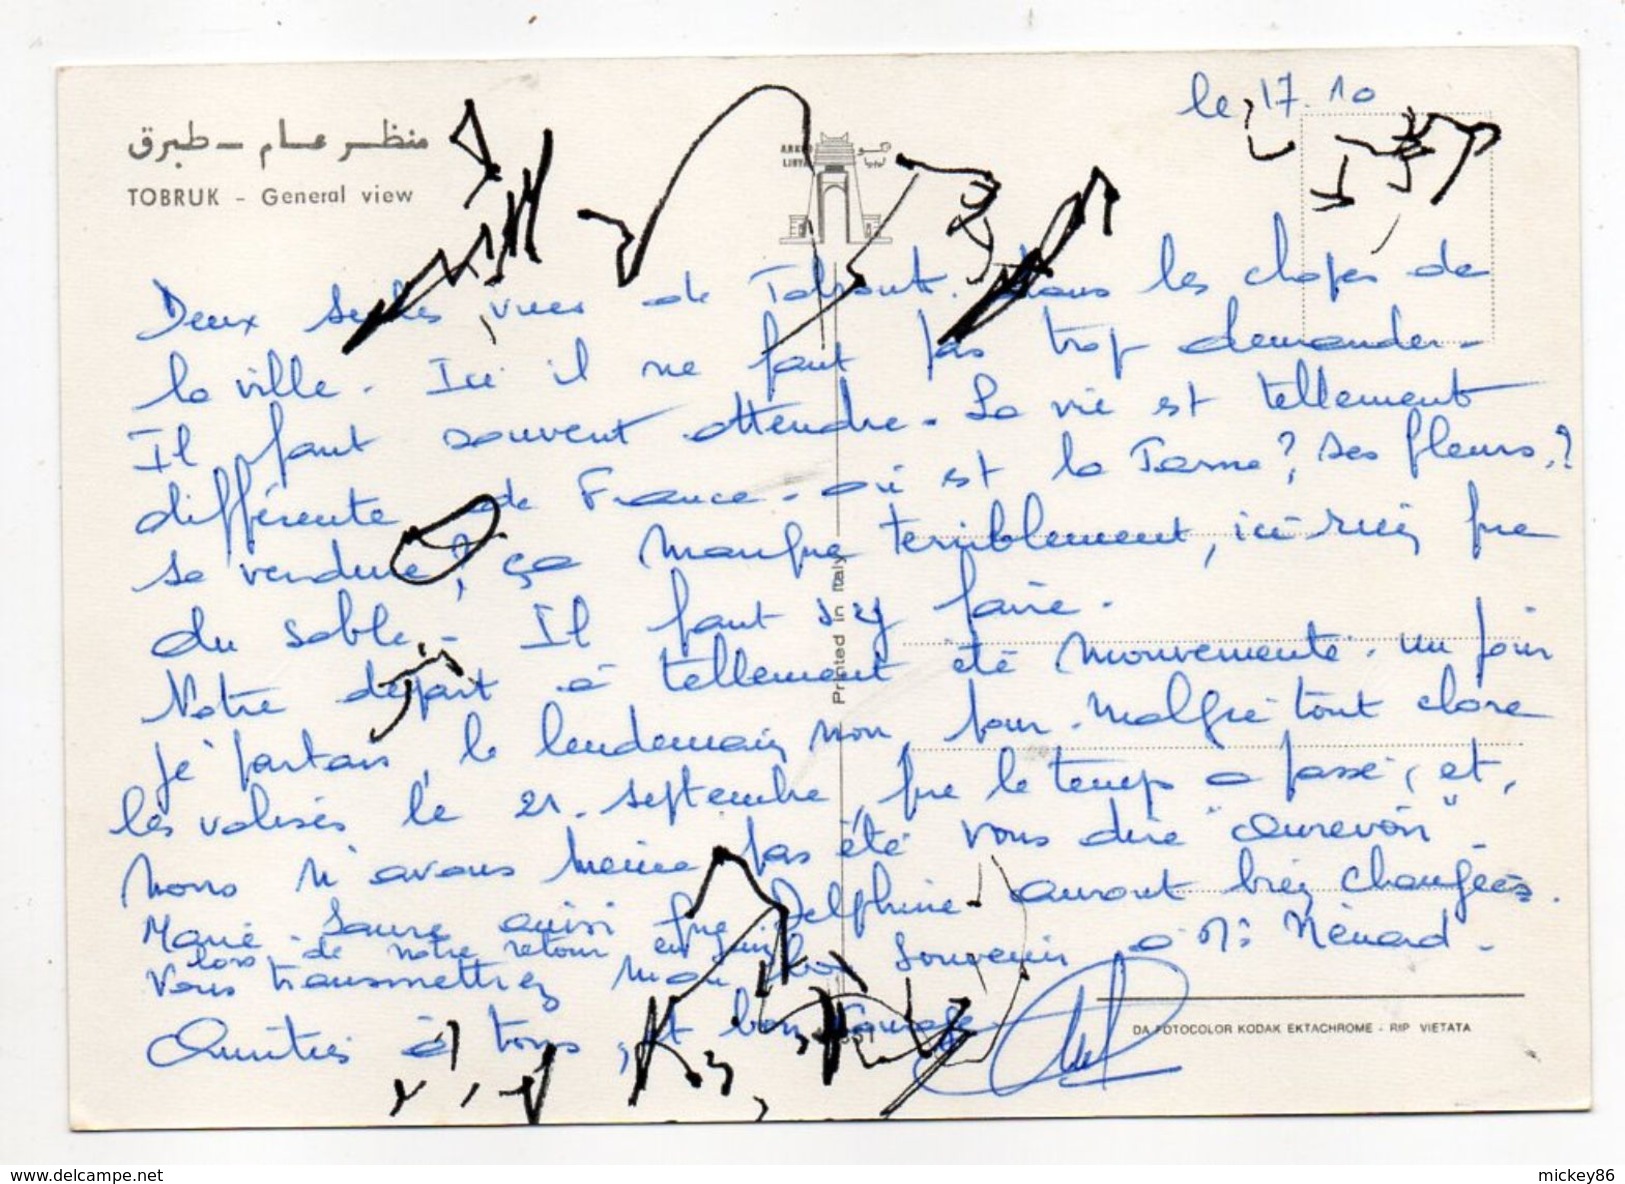 le 17.10
منظر عام - طبرق
TOBRUK - General view
LIBYA
Deux seules vues de Tobrouk. dans les chopes de
la ville. Ici il ne faut pas trop demander.
Il faut souvent attendre. La vie est tellement
différente de France. où est la Tarne? ses fleurs?
sa verdure? ça manque terriblement, ici rien que
du sable. Il faut s'y faire.
Notre départ a tellement été mouvementé. un jour
je partais, le lendemain non, pour malgré tout clore
les valises le 21 septembre, que le temps a passé, et,
nous n'avons même pas été vous dire "aurevoir".
Marie Laure ainsi que Delphine auront bien changées
lors de notre retour en juin
Vous transmettrez mon bon souvenir à Mr Ménard.
Amitiés à tous, et bon courage
Printed in Italy
DA FOTOCOLOR KODAK EKTACHROME - RIP VIETATA
mickey86